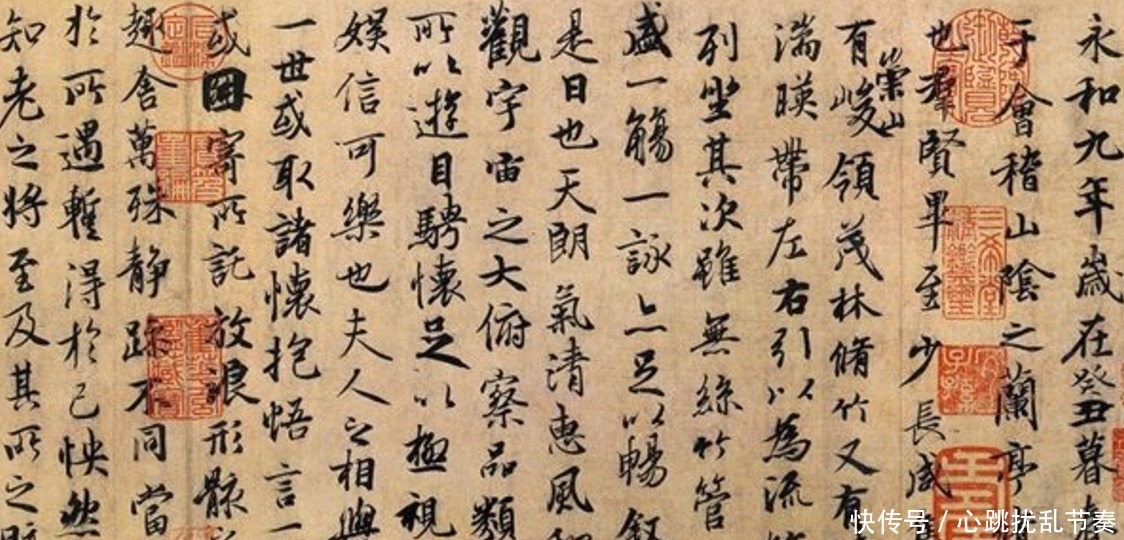 永和九年歲在癸丑暮
于會稽山陰之蘭亭
也羣賢畢至少長咸
有崇山峻領茂林脩竹又有
湍暎帶左右引以為流
列坐其次雖無絲竹管
盛一觴一詠亦足以暢叙
是日也天朗氣清惠風
觀宇宙之大俯察品類
所以遊目騁懷足以極視
娛信可樂也夫人之相與
一世或取諸懷抱悟言一
或因寄所託放浪形骸
趣舍萬殊静躁不同當
於所遇暫得於己怏然
知老之將至及其所之
快传号 / 心跳扰乱节奏